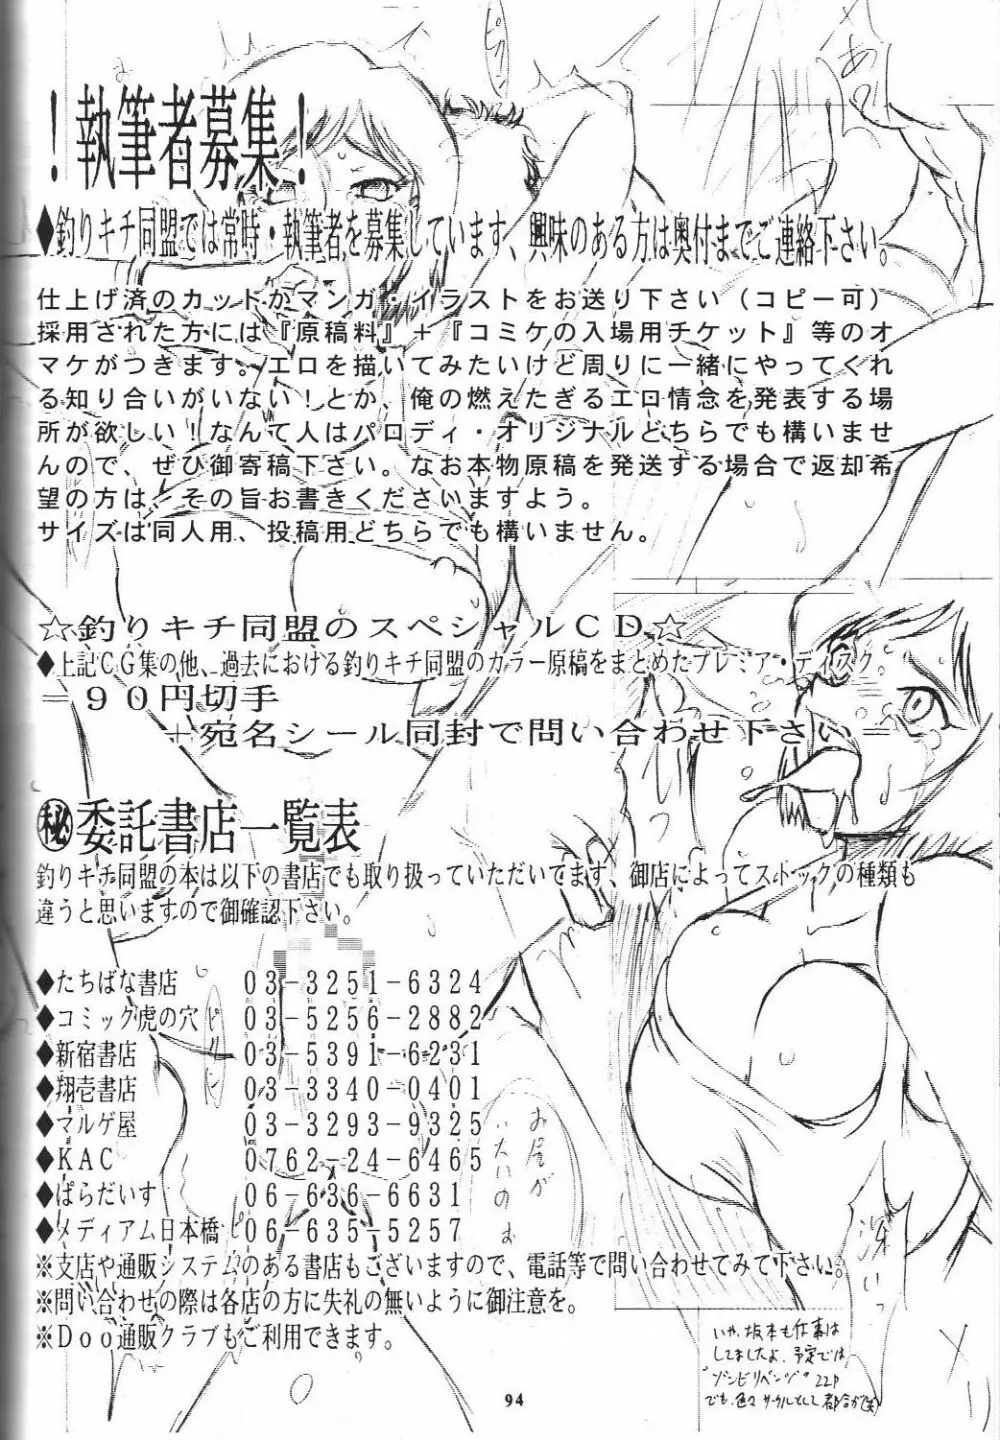 ！執筆者募集！
◆釣りキチ同盟では常時・執筆者を募集しています、興味のある方は奥付までご連絡下さい。
仕上げ済のカットかマンガ・イラストをお送り下さい（コピー可）
採用された方には『原稿料』＋『コミケの入場用チケット』等のオ
マケがつきます。エロを描いてみたいけど周りに一緒にやってくれ
る知り合いがいない！とか、俺の燃えたぎるエロ情念を発表する場
所が欲しい！なんて人はパロディ・オリジナルどちらでも構いませ
んので、ぜひ御寄稿下さい。なお本物原稿を発送する場合で返却希
望の方は、その旨お書きくださいますよう。
サイズは同人用、投稿用どちらでも構いません。
☆釣りキチ同盟のスペシャルＣＤ☆
◆上記ＣＧ集の他、過去における釣りキチ同盟のカラー原稿をまとめたプレミア・ディスク
＝９０円切手
＋宛名シール同封で問い合わせ下さい＝
㊙委託書店一覧表
釣りキチ同盟の本は以下の書店でも取り扱っていただいてます、御店によってストックの種類も
違うと思いますので御確認下さい。
◆たちばな書店 ０３－３２５１－６３２４
◆コミック虎の穴 ０３－５２５６－２８８２
◆新宿書店 ０３－５３９１－６２３１
◆翔壱書店 ０３－３３４０－０４０１
◆マルゲ屋 ０３－３２９３－９３２５
◆ＫＡＣ ０７６２－２４－６４６５
◆ぱらだいす ０６－６３６－６６３１
◆メディアム日本橋 ０６－６３５－５２５７
※支店や通販システムのある書店もございますので、電話等で問い合わせてみて下さい。
※問い合わせの際は各店の方に失礼の無いように御注意を。
※Ｄｏｏ通販クラブもご利用できます。
おなかが
いたいのぉ
深いっ
いや、坂本も仕事は
してましたよ、予定では
"ゾンビリベンジ" 22P
でも、色々サークルとして都合が(笑)
94